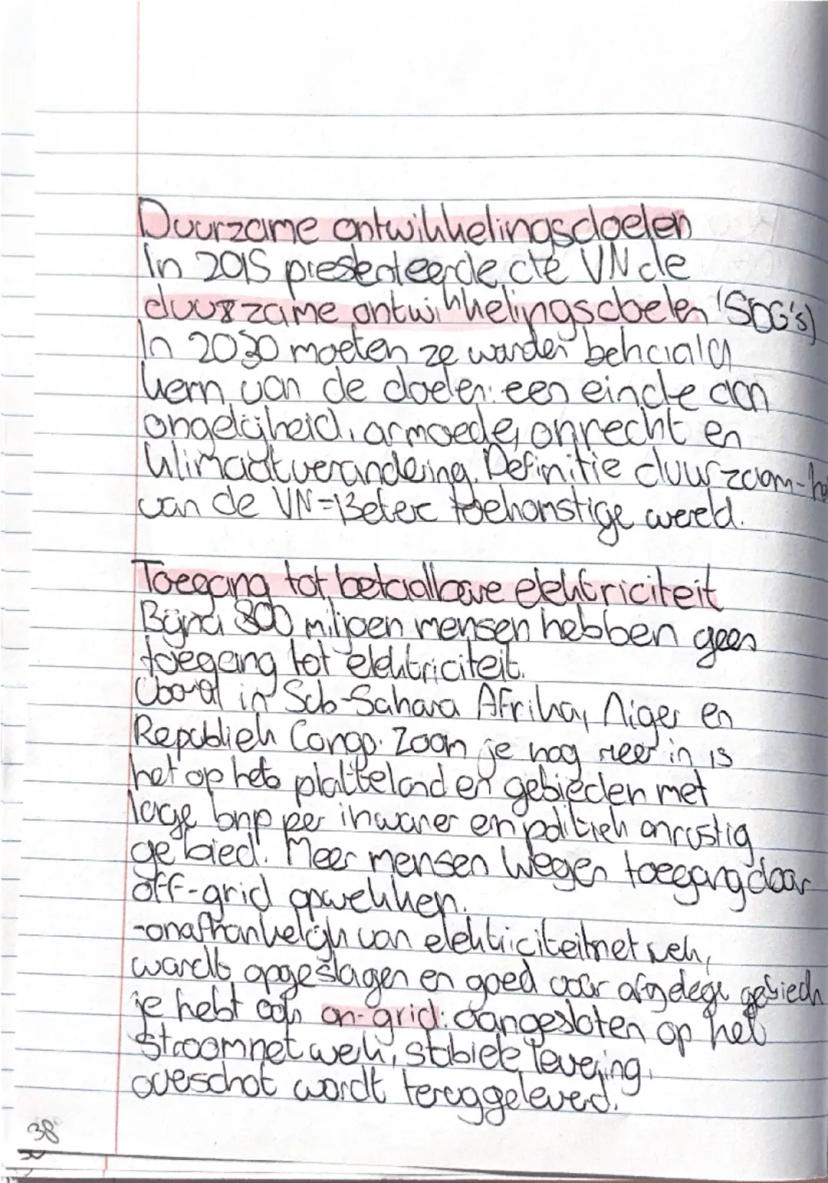 Duurzame ontwikkelingsdoelen
In 2015 presenteerde de VN de
duurzame ontwikkelingsdoelen (SDG's)
In 2030 moeten ze worden behaald
kern van de doelen: een einde aan
ongelijheid, armoede, onrecht en
klimaatverandering. Definitie duurzaam-he
van de VN = Beter toekomstige wereld.
Toegang tot betaalbare elektriciteit
Bijna 800 miljoen mensen hebben geen
toegang tot elektriciteit.
Vooral in Sub-Sahara Afrika, Niger en
Republiek Congo. Zoom je nog meer in is
het op het platteland en gebieden met
lage bnp per inwoner en politiek onrustig
gebied. Meer mensen kregen toegang door
off-grid opwekken.
-onafhankelijk van elektriciteitnetwerk,
wordt opgeslagen en goed voor afgelege gebied
je hebt ook on-grid: aangesloten op het
stroomnetwerk, stabiele levering.
overschot wordt teruggeleverd.
38